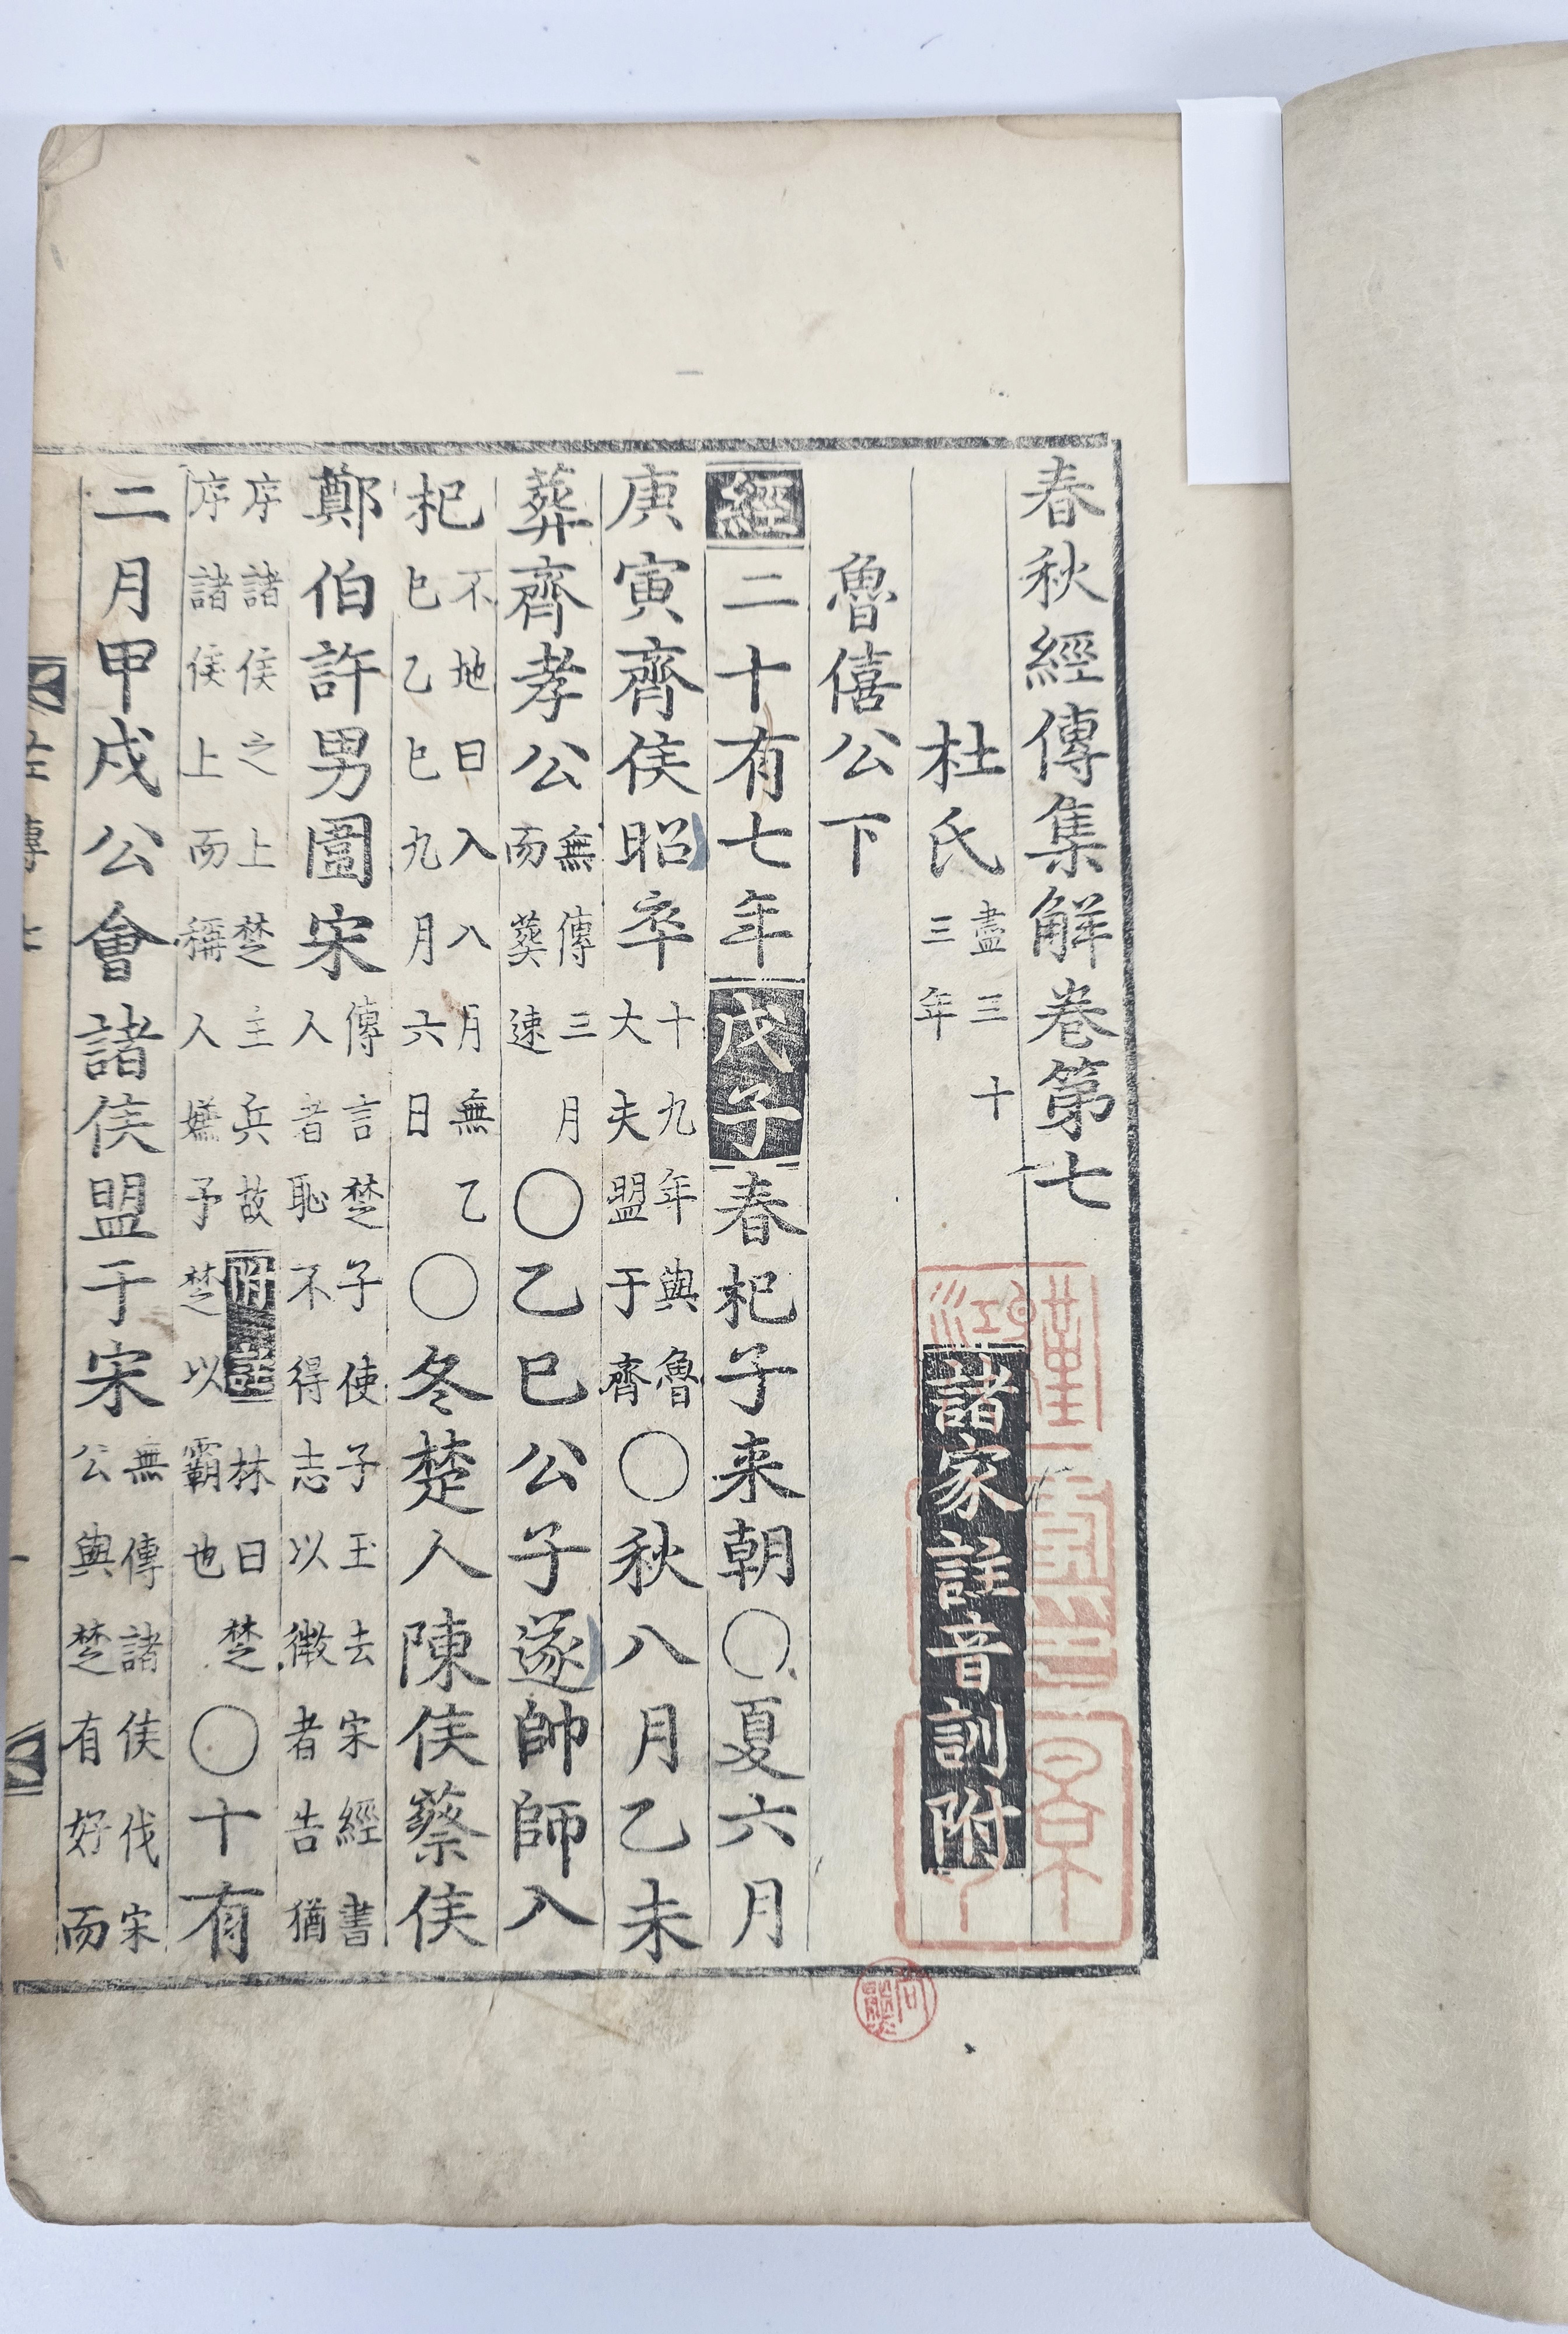 春秋經傳集解卷第七
杜氏盡三十三年諸家註音訓附
魯僖公下
經二十有七年戊子春杞子来朝〇夏六月
庚寅齊侯昭卒十九年與魯大夫盟于齊〇秋八月乙未
葬齊孝公無傳三月而葬速〇乙巳公子遂帥師入
杞不地曰入八月無乙巳乙巳九月六日〇冬楚人陳侯蔡侯
鄭伯許男圍宋傳言楚子使子玉去宋經書人者恥不得志以微者告猶
序諸侯之上楚主兵故附註林曰楚序諸侯上而稱人嫌予楚以霸也〇十有
二月甲戌公會諸侯盟于宋無傳諸侯伐宋公與楚有好而